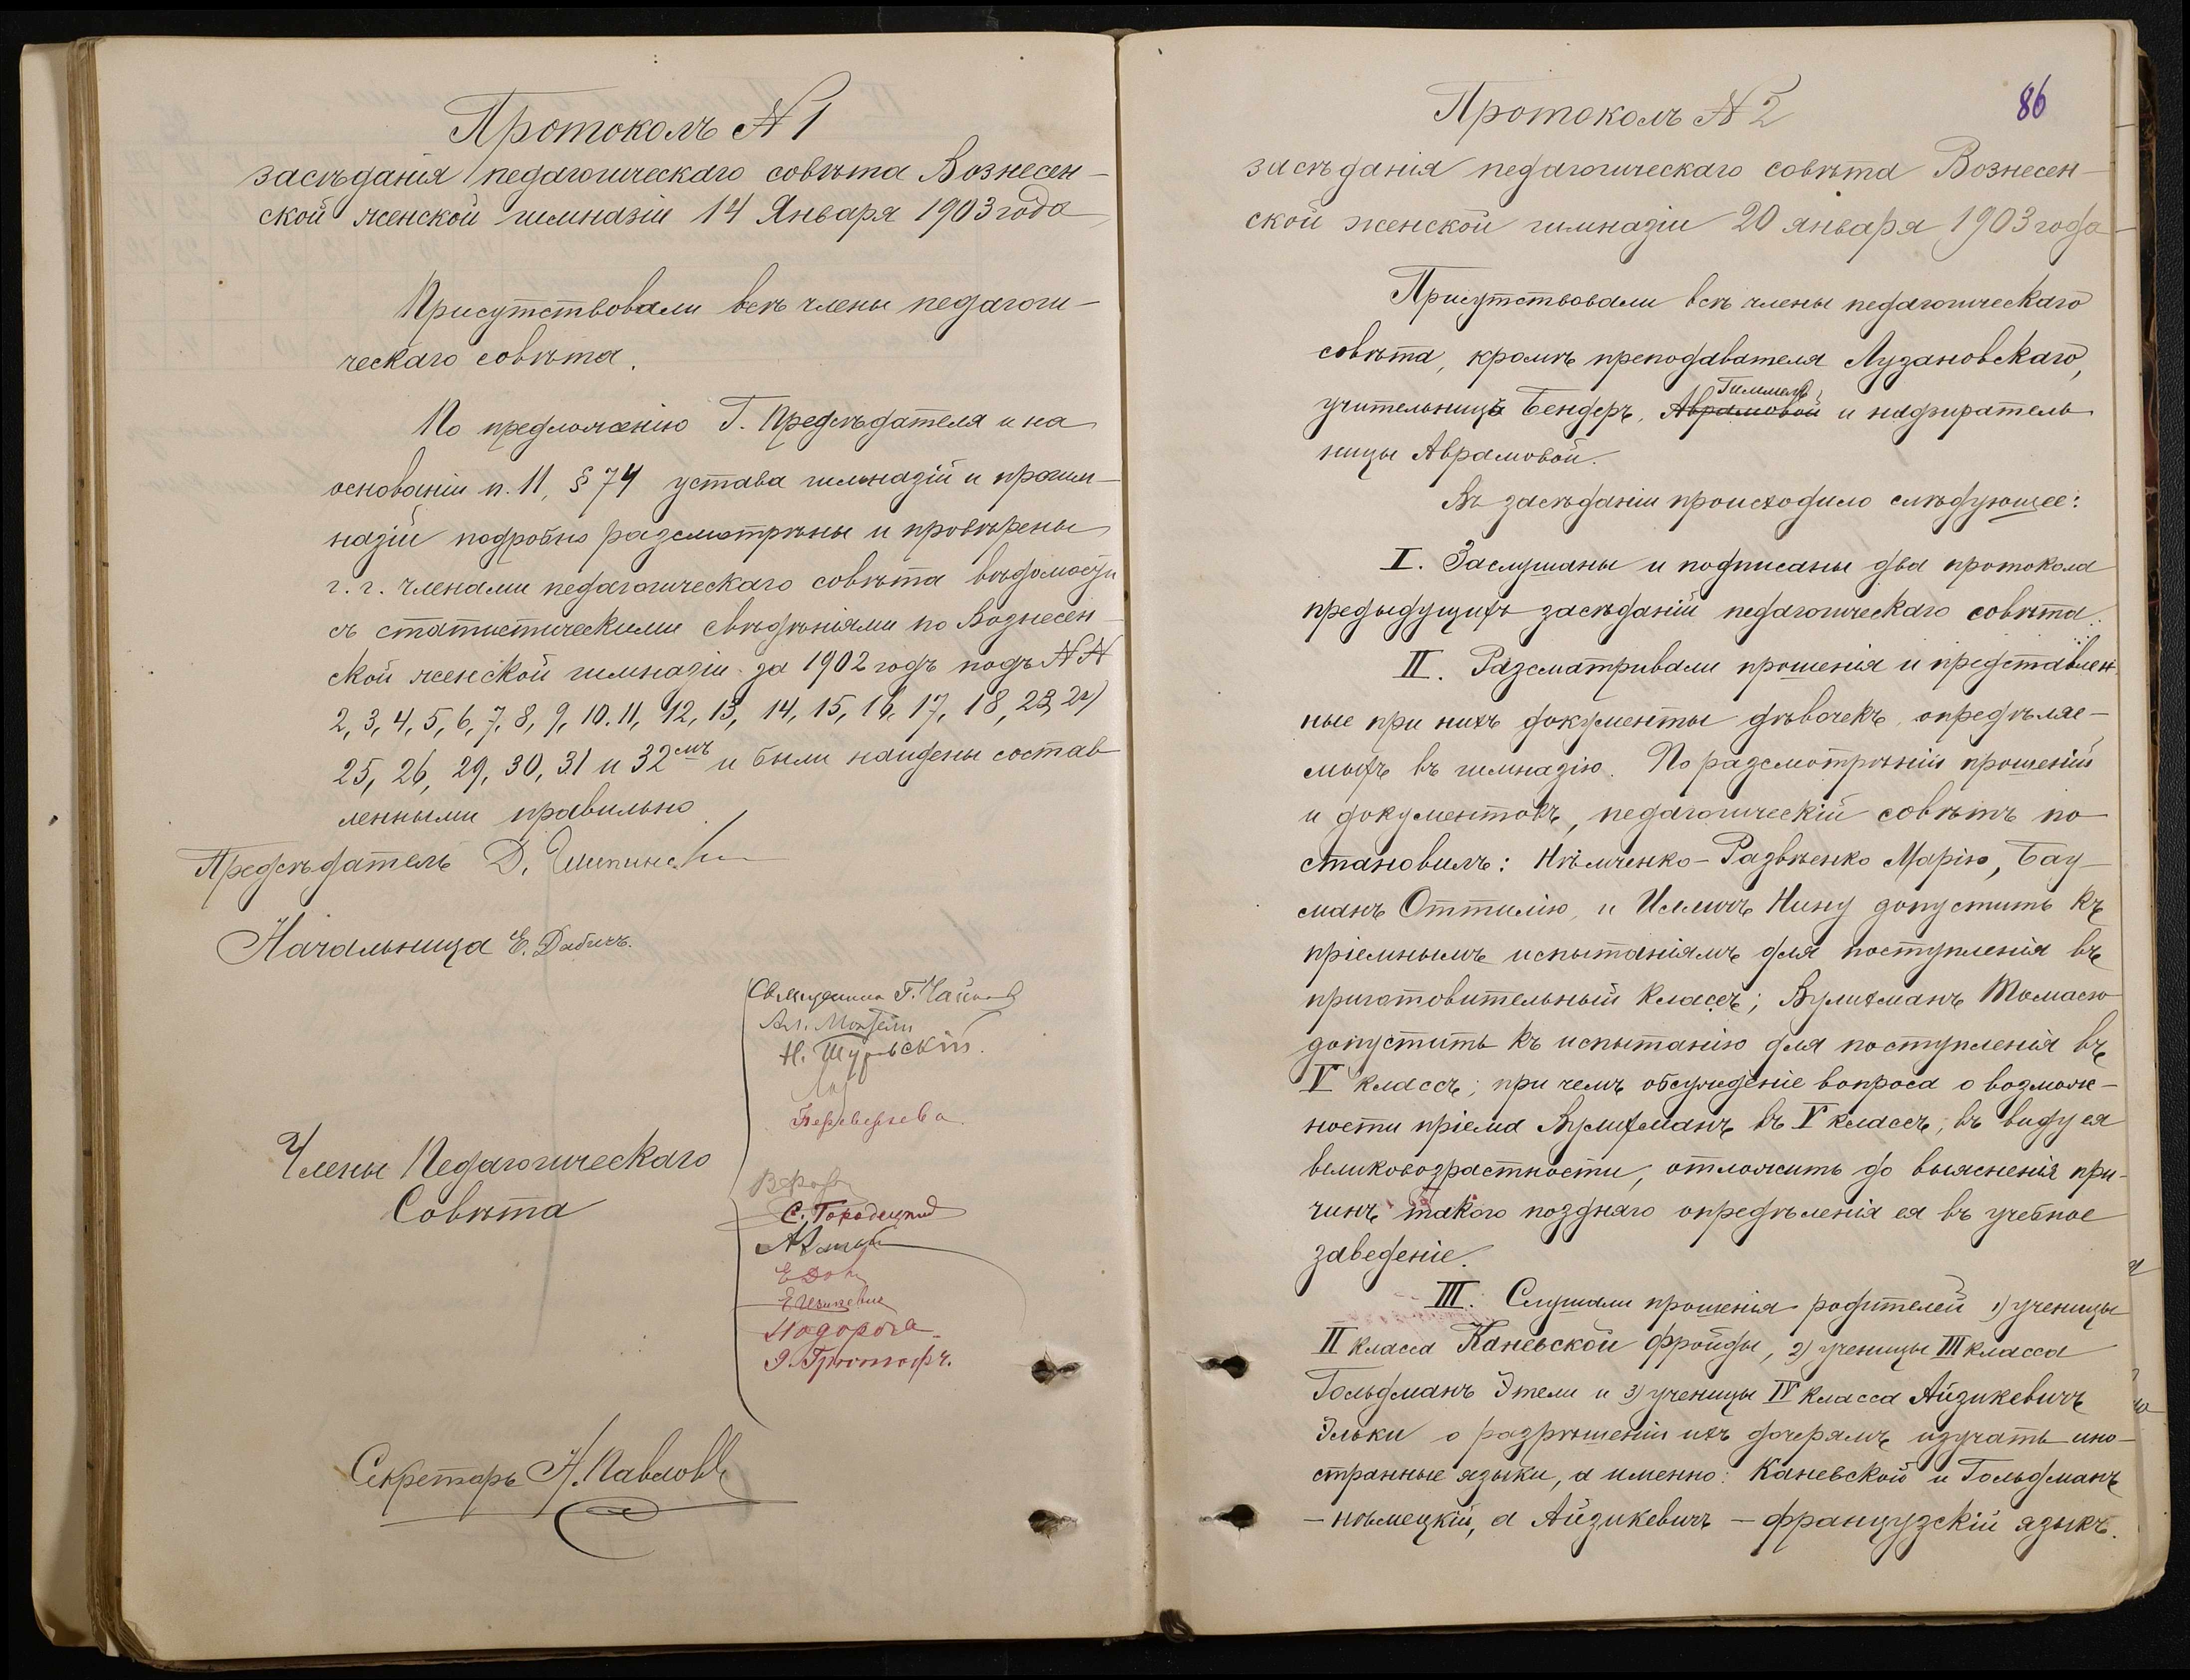 Протоколъ № 1
засѣданія педагогическаго совѣта Вознесен-
ской женской гимназіи 14 Января 1903 года
Присутствовали всѣ члены педагоги-
ческаго совѣта.
По предложенію Г. Предсѣдателя и на
основаніи п. 11, § 74 устава гимназій и прогим-
назій подробно разсмотрѣны и провѣрены
г. г. членами педагогическаго совѣта вѣдомости
съ статистическими свѣдѣніями по Вознесен-
ской женской гимназіи за 1902 годъ подъ №№
2, 3, 4, 5, 6, 7, 8, 9, 10, 11, 12, 13, 14, 15, 16, 17, 18, 23, 24,
25, 26, 29, 30, 31 и 32смъ и были найдены состав-
ленными правильно.
Предсѣдатель Д.
Начальница Е. Дабичъ.
Члены Педагогическаго
Совѣта
Священникъ Г.
Ал.
Н. Щуровскій.
С. Городецкій
Э. Гростофъ.
Секретарь Н. Павловъ
86
Протоколъ № 2
засѣданія педагогическаго совѣта Вознесен-
ской женской гимназіи 20 января 1903 года
Присутствовали всѣ члены педагогическаго
совѣта, кромѣ преподавателя Лузановскаго,
учительницъ Бендеръ, Аврамовой и надзиратель-
ницы Аврамовой.
Въ засѣданіи происходило слѣдующее:
I. Заслушаны и подписаны два протокола
предыдущихъ засѣданій педагогическаго совѣта.
II. Разсматривали прошенія и представлен-
ные при нихъ документы дѣвочекъ, опредѣляе-
мыхъ въ гимназію. По разсмотрѣніи прошеній
и документовъ, педагогическій совѣтъ по-
становилъ: Нѣмченко-Развѣенко Марію, Бау-
манъ Оттилію, и Илличъ Нину допустить къ
пріемнымъ испытаніямъ для поступленія въ
приготовительный классъ; Вулихманъ Томасю
допустить къ испытанію для поступленія въ
V классъ; при чемъ обсужденіе вопроса о возмож-
ности пріема Вулихманъ въ V классъ, въ виду ея
великовозрастности, отложить до выясненія при-
чинъ такого поздняго опредѣленія ея въ учебное
заведеніе.
III. Слушали прошенія родителей 1) ученицы
II класса Каневской Фройды, 2) ученицы III класса
Гольдманъ Этели и 3) ученицы IV класса Айзикевичъ
Эльки о разрѣшеніи ихъ дочерямъ изучать ино-
странные языки, а именно: Каневской и Гольдманъ
— нѣмецкій, а Айзикевичъ — французскій языкъ.